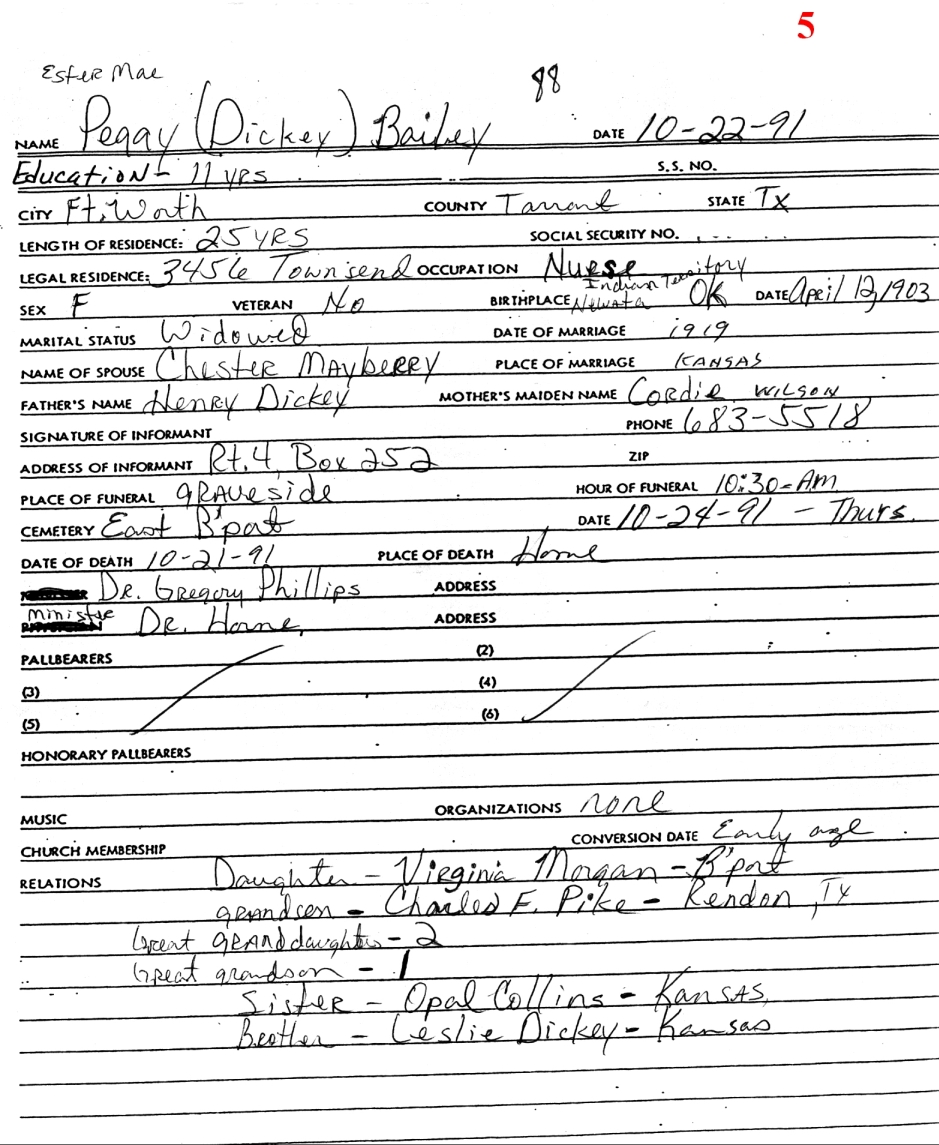 5
Ester Mae
88
NAME Peggy (Dickey) Bailey DATE 10-22-91
Education - 11 YRS S.S. NO.
CITY Ft. Worth COUNTY Tarrant STATE TX
LENGTH OF RESIDENCE: 25 YRS SOCIAL SECURITY NO.
LEGAL RESIDENCE: 3456 Townsend OCCUPATION Nurse
Indian Territory
SEX F VETERAN No BIRTHPLACE Nowata OK DATE April 12, 1903
MARITAL STATUS Widowed DATE OF MARRIAGE 1919
NAME OF SPOUSE Chester Mayberry PLACE OF MARRIAGE KANSAS
FATHER'S NAME Henry Dickey MOTHER'S MAIDEN NAME Cordie WILSON
SIGNATURE OF INFORMANT PHONE 683-5518
ADDRESS OF INFORMANT Rt. 4, Box 252 ZIP
PLACE OF FUNERAL graveside HOUR OF FUNERAL 10:30-Am
CEMETERY East B'port DATE 10-24-91 - Thurs.
DATE OF DEATH 10-21-91 PLACE OF DEATH Home
Dr. Gregory Phillips ADDRESS
Minister Dr. Horne, ADDRESS
PALLBEARERS (2)
(3) (4)
(5) (6)
HONORARY PALLBEARERS
MUSIC ORGANIZATIONS none
CHURCH MEMBERSHIP CONVERSION DATE Early age
RELATIONS Daughter - Virginia Morgan - B'port
grandson - Charles F. Pike - Rendon, TX
Great granddaughter - 2
Great grandson - 1
Sister - Opal Collins - Kansas
Brother - Leslie Dickey - Kansas